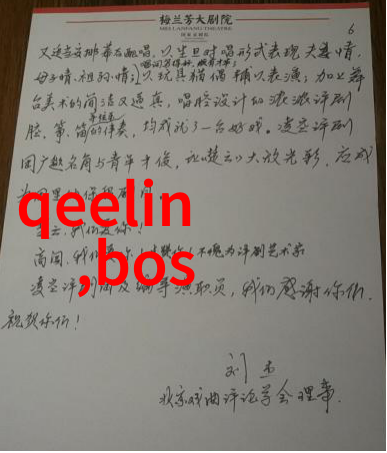 梅兰芳大剧院
MEI LANFANG THEATRE
国家京剧院
6
又适当安排幕后翻唱，以生旦对唱形式表现夫妻情，
母子情、祖孙情；以玩具楷偶辅以表演，加上舞
台美术的简洁又逼真，唱腔设计的浓浓评剧
腔，筝、笛的伴奏，均成就了一台好戏。凌空评剧
团广邀名角与青年才俊，让《楚云》大放光彩，应成
qeelin
,bos
高闯，我们
不愧为评剧艺术家
凌空评剧团及编导演职员，我们感谢你们，
祝贺你们！
刘
北京戏曲评论学会理事.